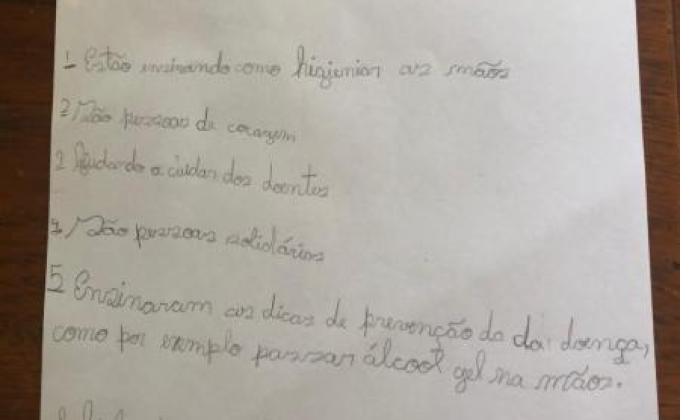 1- Estão ensinando como higienian as mãos
2 São pessoas de coragem
3 Ajudando a cuidar dos doentes
4 São pessoas solidários
5 Ensinaram as dicas de prevenção da da doença,
como por exemplo passar álcool gel na mãos.